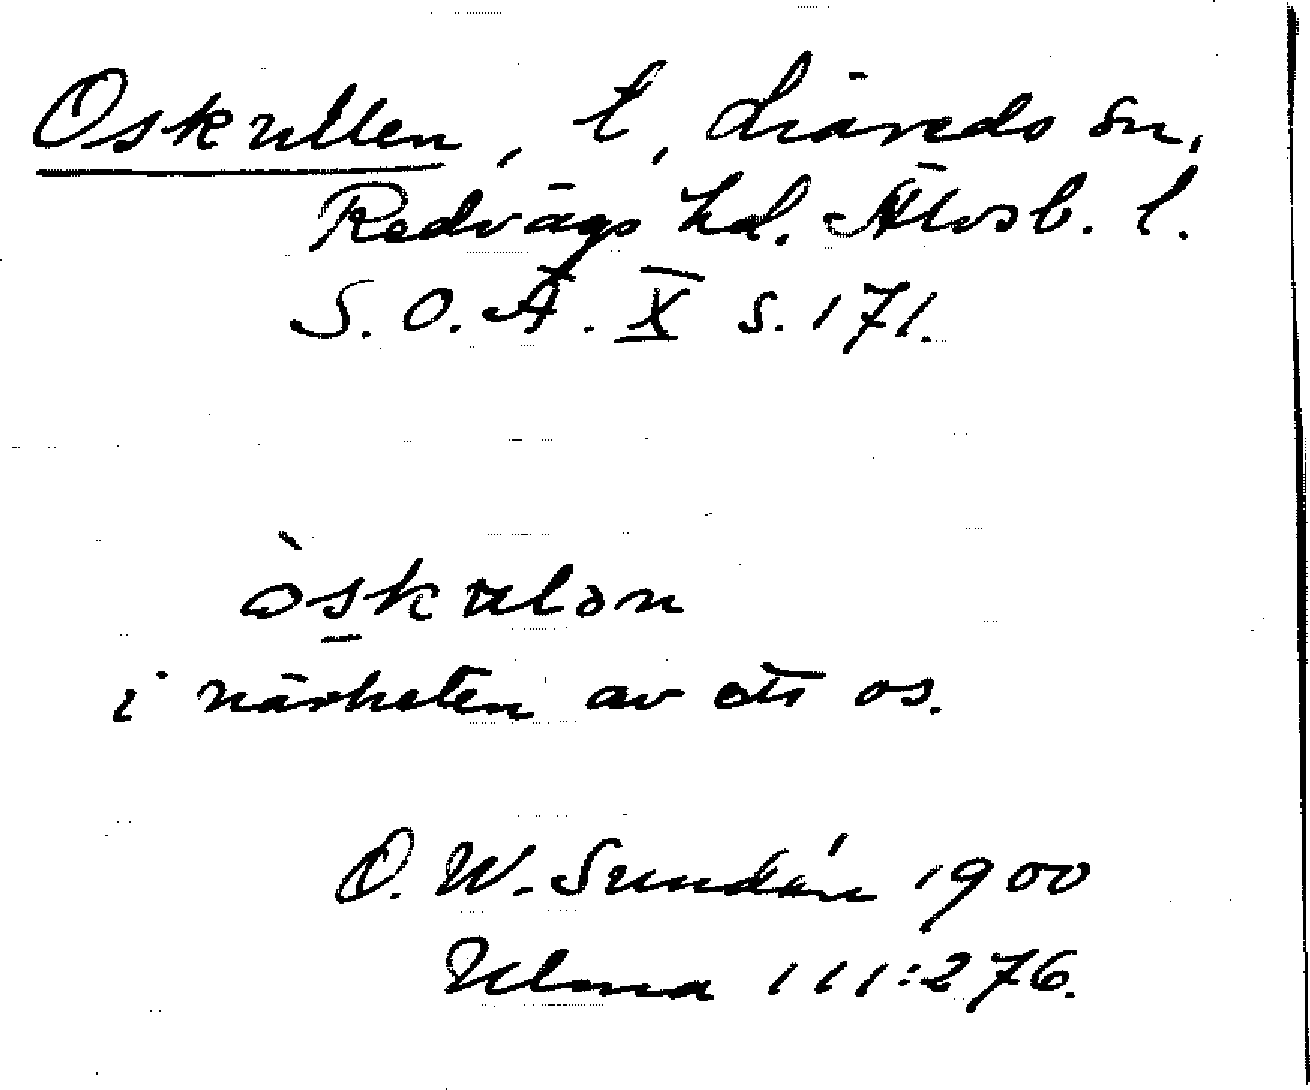 Oskullen, t, Liareds sn,
Redvägs hd. Älvsb. l.
S.O.Ä. X s. 171.
òskulən
i närheten av ett os.
O. W. Sundén 1900
Ulma 111:276.